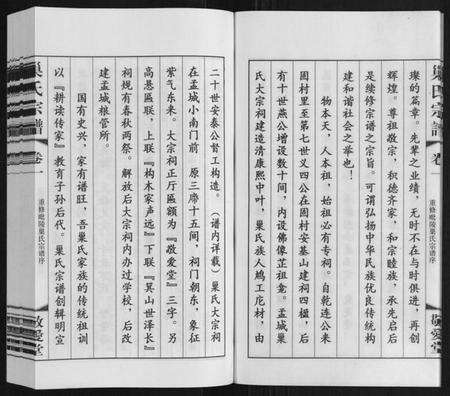 巢氏宗谱
卷一
重修毗陵巢氏宗谱序
敬爱堂
璨的篇章。先辈之业绩，无时不在与时俱进，再创
辉煌。尊祖敬宗，积德齐家，和宗睦族，承先启后
是续修宗谱之宗旨。可谓弘扬中华民族优良传统构
建和谐社会之举也！
物本天，人本祖，始祖必有专祠。自乾连公来
固村里至第七世义四公在固村安基山建祠四楹，后
有十世燕公增茂数十间，内设佛像芷祖龛。孟城巢
氏大宗祠建造清康熙中叶，巢氏族人鸠工庀材，由
二十世安泰公督工构造。（谱内详载）巢氏大宗祠
在孟城小南门前原三席十五间，祠门朝东，象征
紫气东来。大宗祠正厅匾额为『敬爱堂』三字。另
高悬匾联，上联『构木家声远』下联『箕山世泽长』
祠规有春秋两祭。解放后大宗祠内办过学校，后改
建孟城粮管所。
国有史兴，家有谱旺，吾巢氏家族的传统祖训
以『耕读传家』教育子孙后代。巢氏宗谱创辑明宣
巢氏宗谱
卷一
重修毗陵巢氏宗谱序
敬爱堂